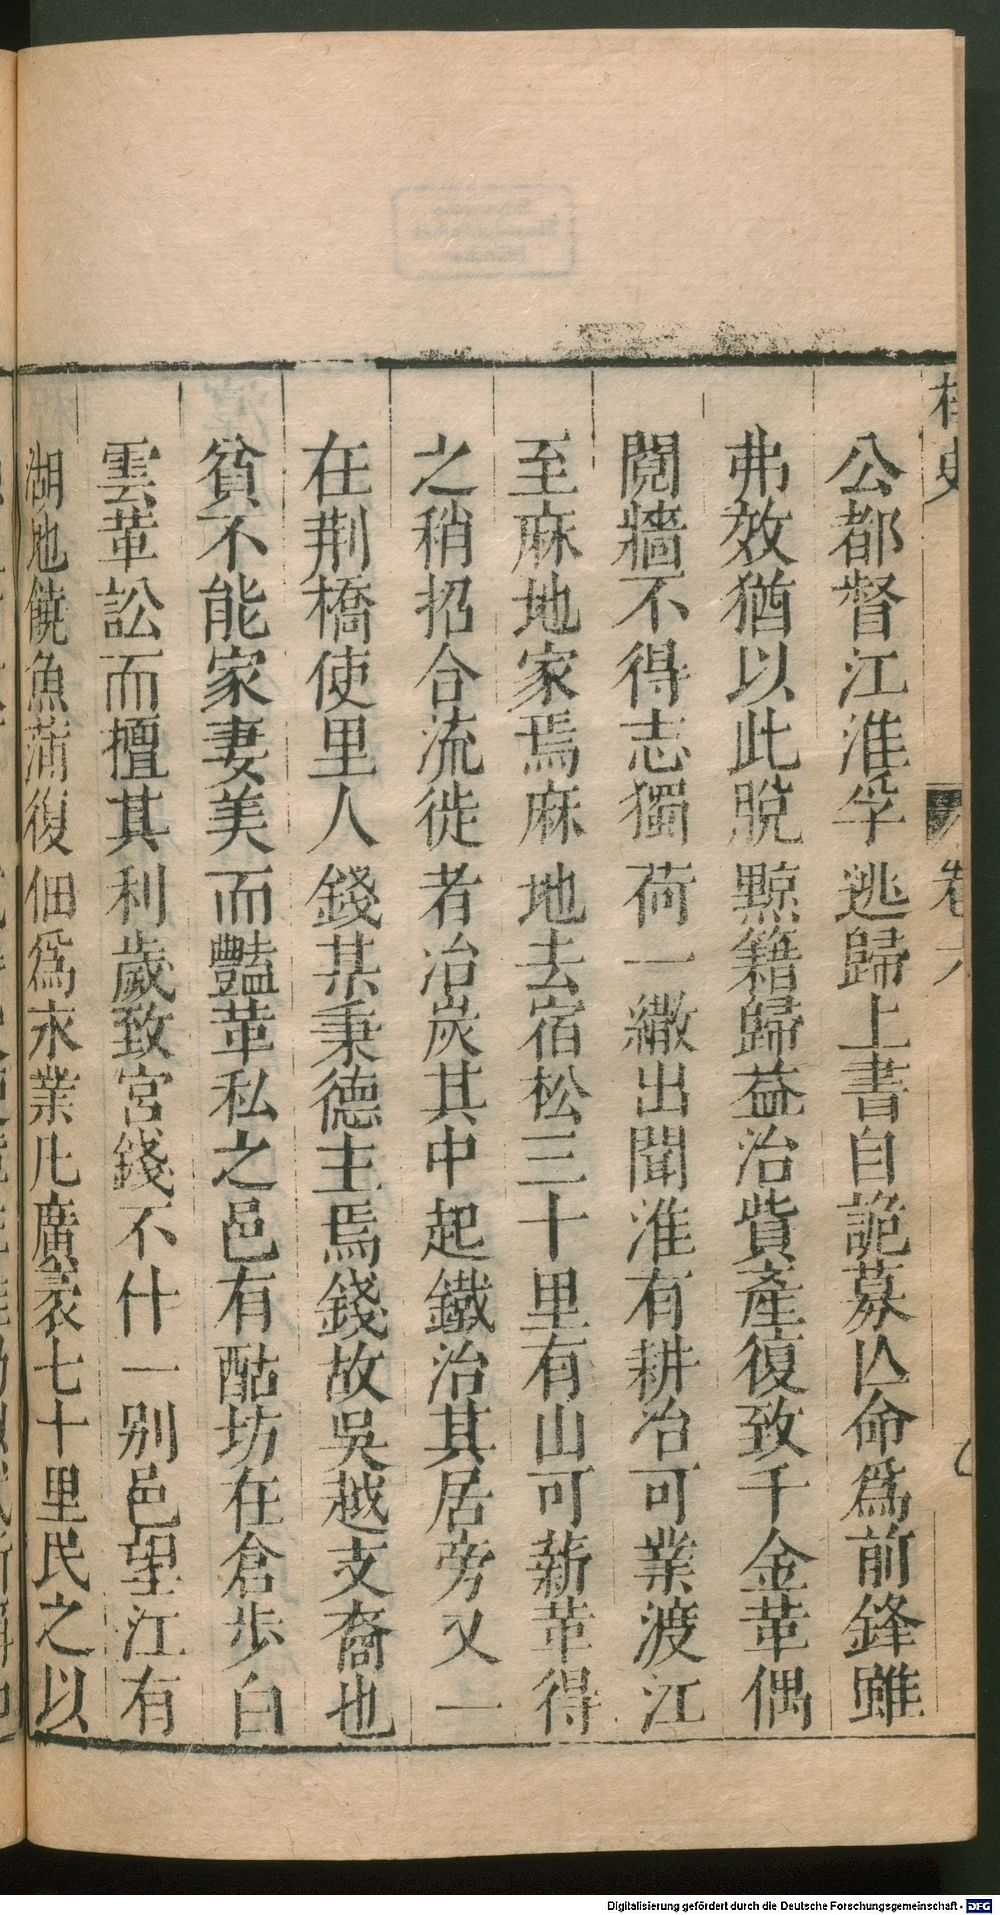 桯史
卷六
公都督江淮孚逃歸上書自詭募亡命爲前鋒雖
弗效猶以此脫黥籍歸益治貲產復致千金革偶
鬩牆不得志獨荷一繖出聞淮有耕冶可業渡江
至麻地家焉麻地去宿松三十里有山可薪革得
之稍招合流徙者冶炭其中起鐵冶其居旁又一
在荆橋使里人錢某秉德主焉錢故吳越支裔也
貧不能家妻美而豔革私之邑有酤坊在倉步白
雲革訟而擅其利歲致官錢不什一别邑望江有
湖地饒魚蒲復佃爲永業凡廣袤七十里民之以
Digitalisierung gefördert durch die Deutsche Forschungsgemeinschaft - DFG